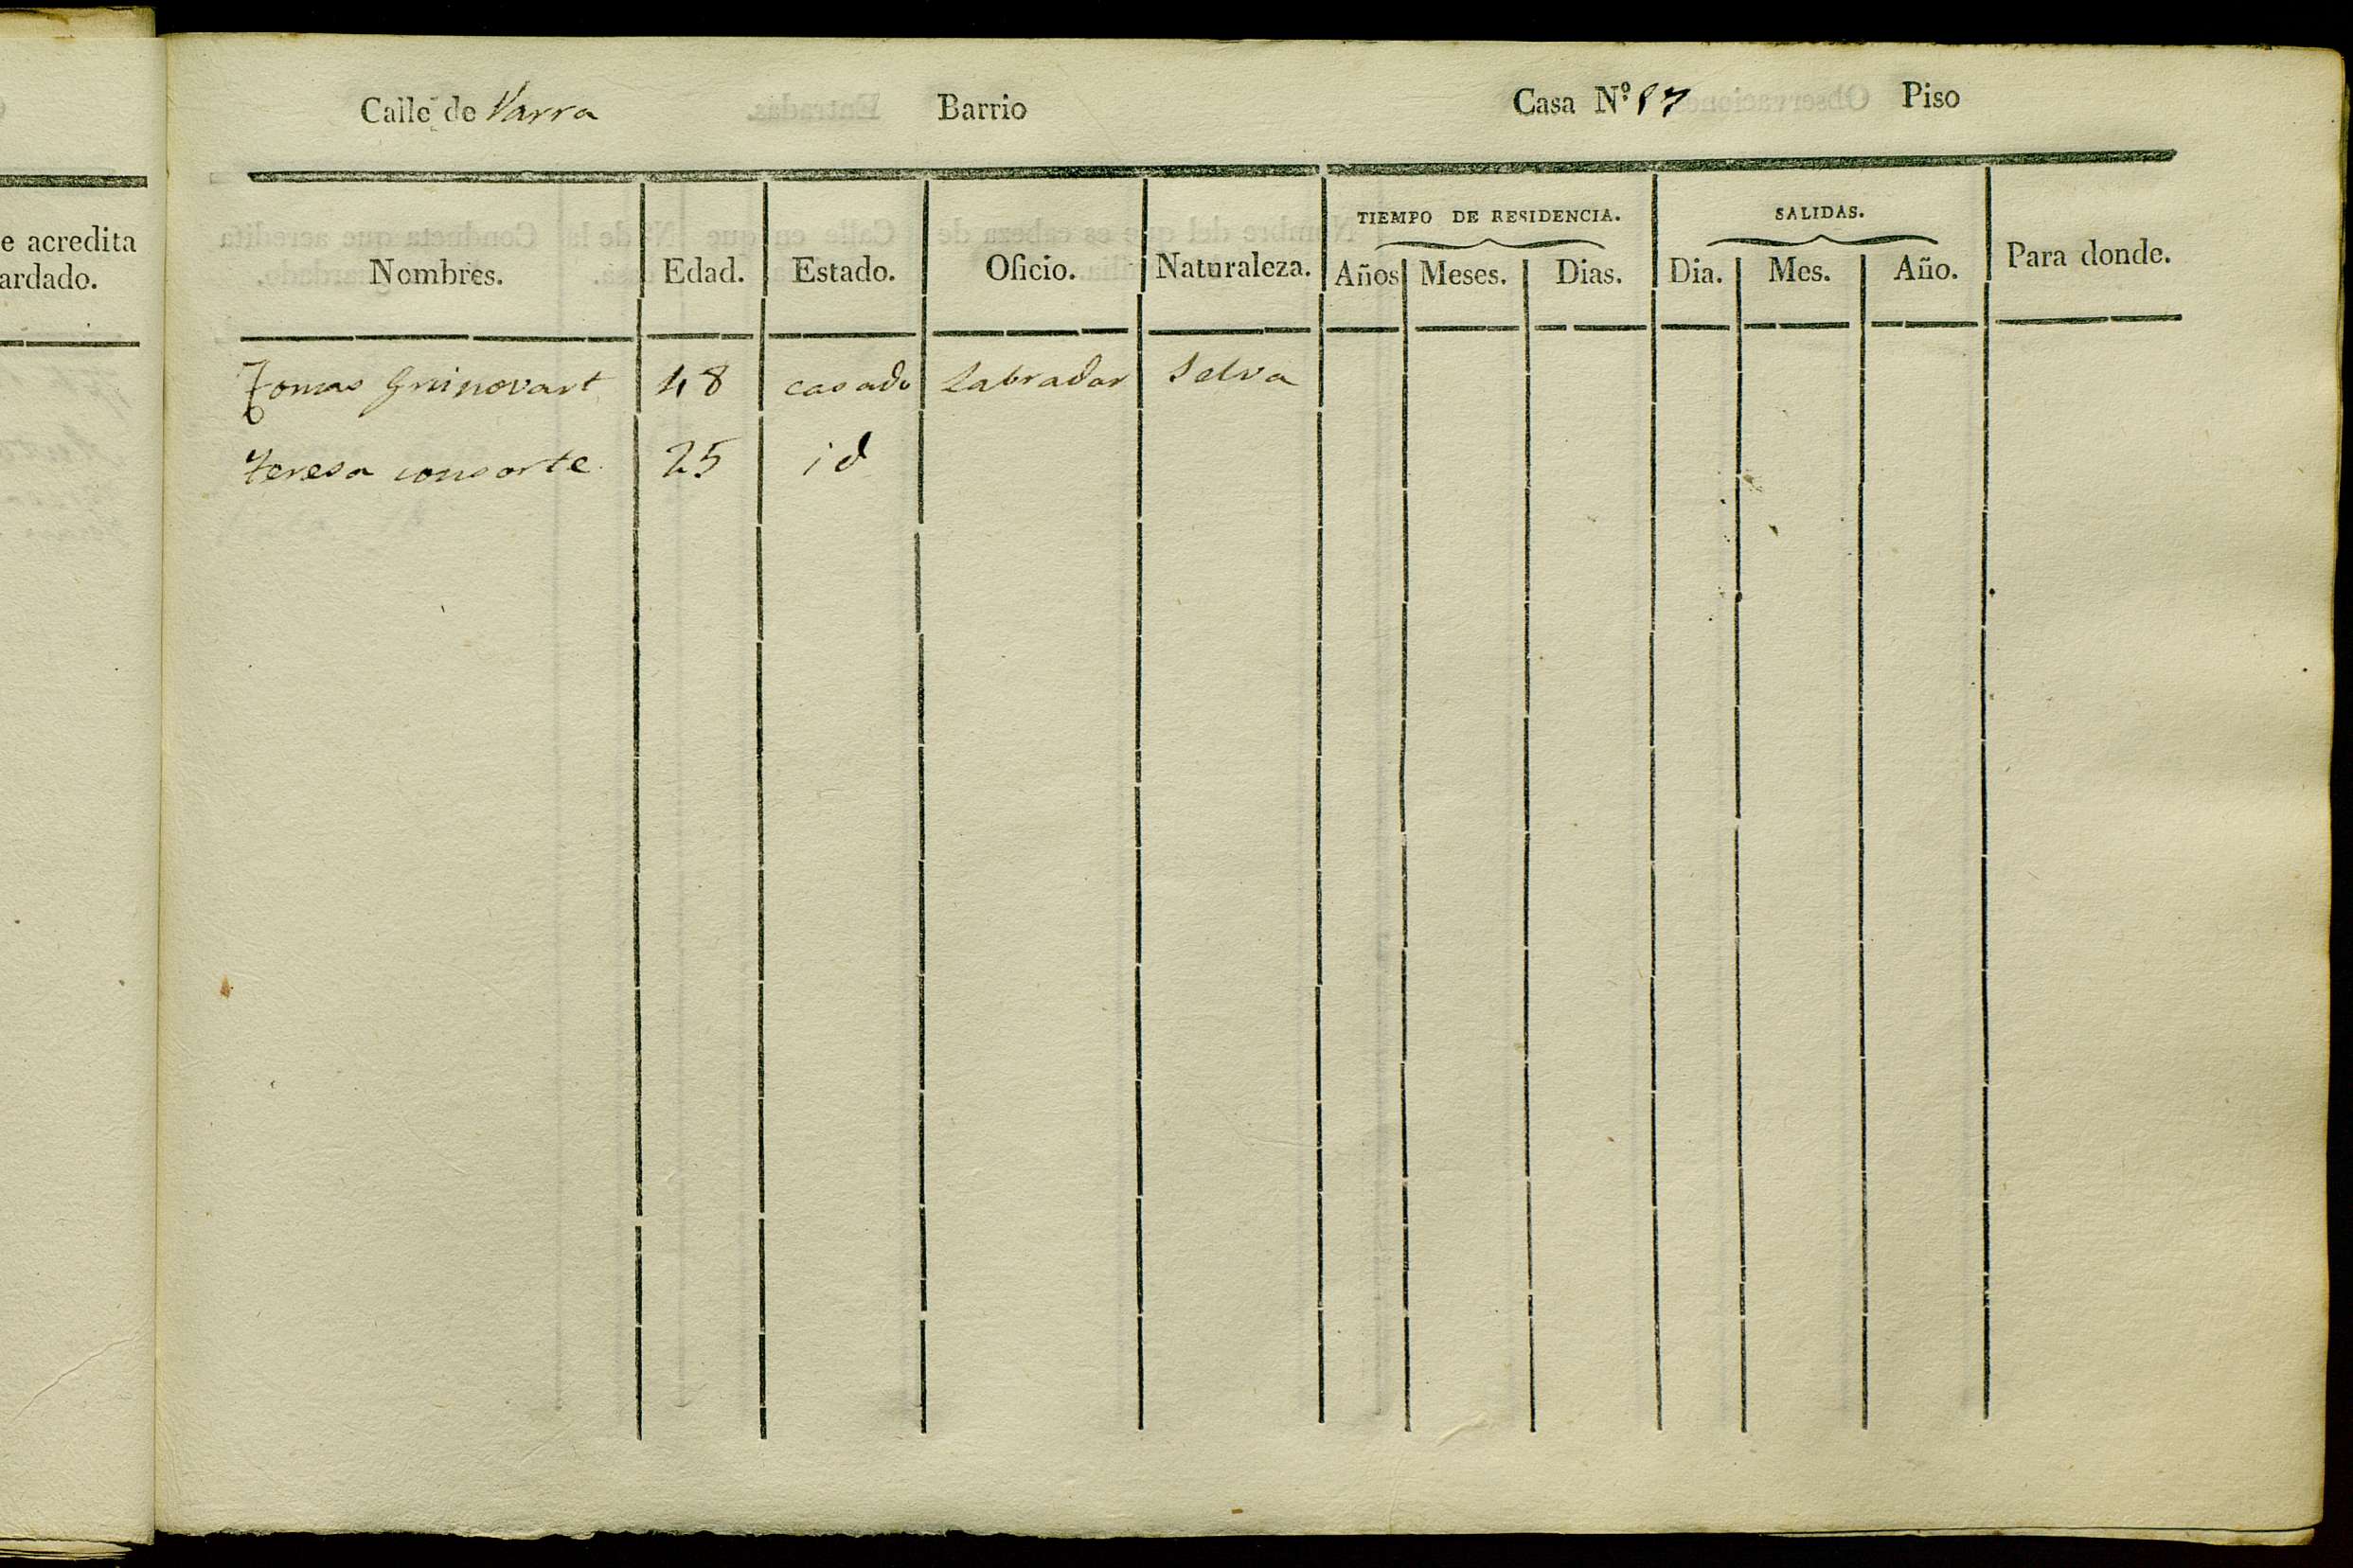 Calle de Varra Barrio Casa Nº. 87 Piso
e acredita
ardado.
TIEMPO DE RESIDENCIA. SALIDAS.
Nombres. Edad. Estado. Oficio. Naturaleza. Años Meses. Dias. Dia. Mes. Año. Para donde.
Tomas Guinovart 48 casado Labrador Selva
Teresa consorte 25 id